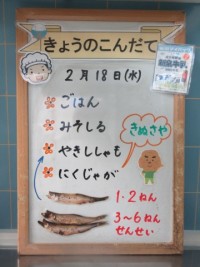 きょうのこんだて
2月18日(水)
ごはん
みそしる
やきししゃも
にくじゃが
きぬさや
1・2ねん
3~6ねん
せんせい